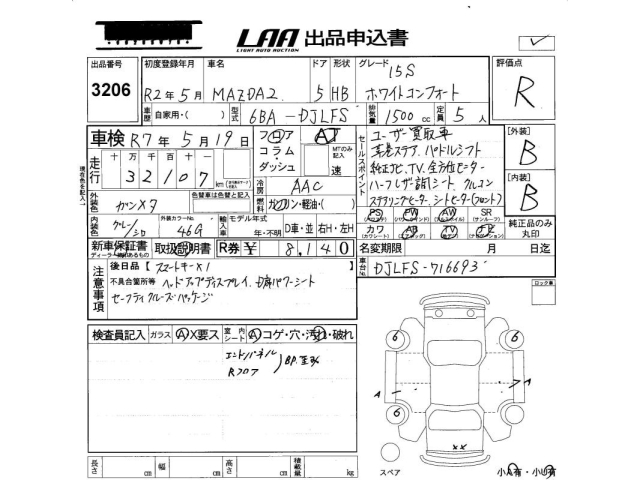 LAA 出品申込書
LIGHT AUTO AUCTION
出品番号 3206
初度登録年月 R2年5月
車名 MAZDA2
ドア 5 形状 HB
グレード 15S ホワイトコンフォート
評価点 R
車歴 自家用・( )
型式 6BA-DJLFS
排気量 1500cc
定員 5人
車検 R7年5月19日
フロア コラム・ダッシュ
AT
MTのみ記入 速
走行 十万 万 千 百 十 一
32107 km
現在色を記入
外装色 ガンメタ
色替車は色替と記入
冷房 AAC
燃料 ガソリン・軽油・( )
内装色 グレー/シロ
外装カラーNo. 46G
輸入車 モデル年式 年・不明
D車・並 右H・左H
セールスポイント
ユーザー買取車
革巻ステア、パドルシフト
純正ナビ、TV、全方位モニター
ハーフレザー調シート クルコン
ステアリングヒーター、シートヒーター(フロント)
PS PW AW SR
(パワステ) (パワーウインド) (アルミホイル) (サンルーフ)
カワ AB TV ナビ
(カワシート) (エアバッグ)
【外装】 B
【内装】 B
純正品のみ丸印
新車保証書
ディーラー様印のあるもの
取扱説明書
R券 ¥ 8,140
名変期限 月 日迄
注意事項
後日品【スマートキーX1 】
不具合箇所等 ヘッドアップディスプレイ、D席パワーシート
セーフティクルーズパッケージ
車台No. DJLFS-716693
ロック車
検査員記入
ガラス A X要ス
室内シート A コゲ・穴・汚れ・破れ
エンドパネル
Rフロア
6 6
A A
6 6
××
長さ cm 幅 cm 高さ cm 積載量 kg
スペア
小A有・小U有